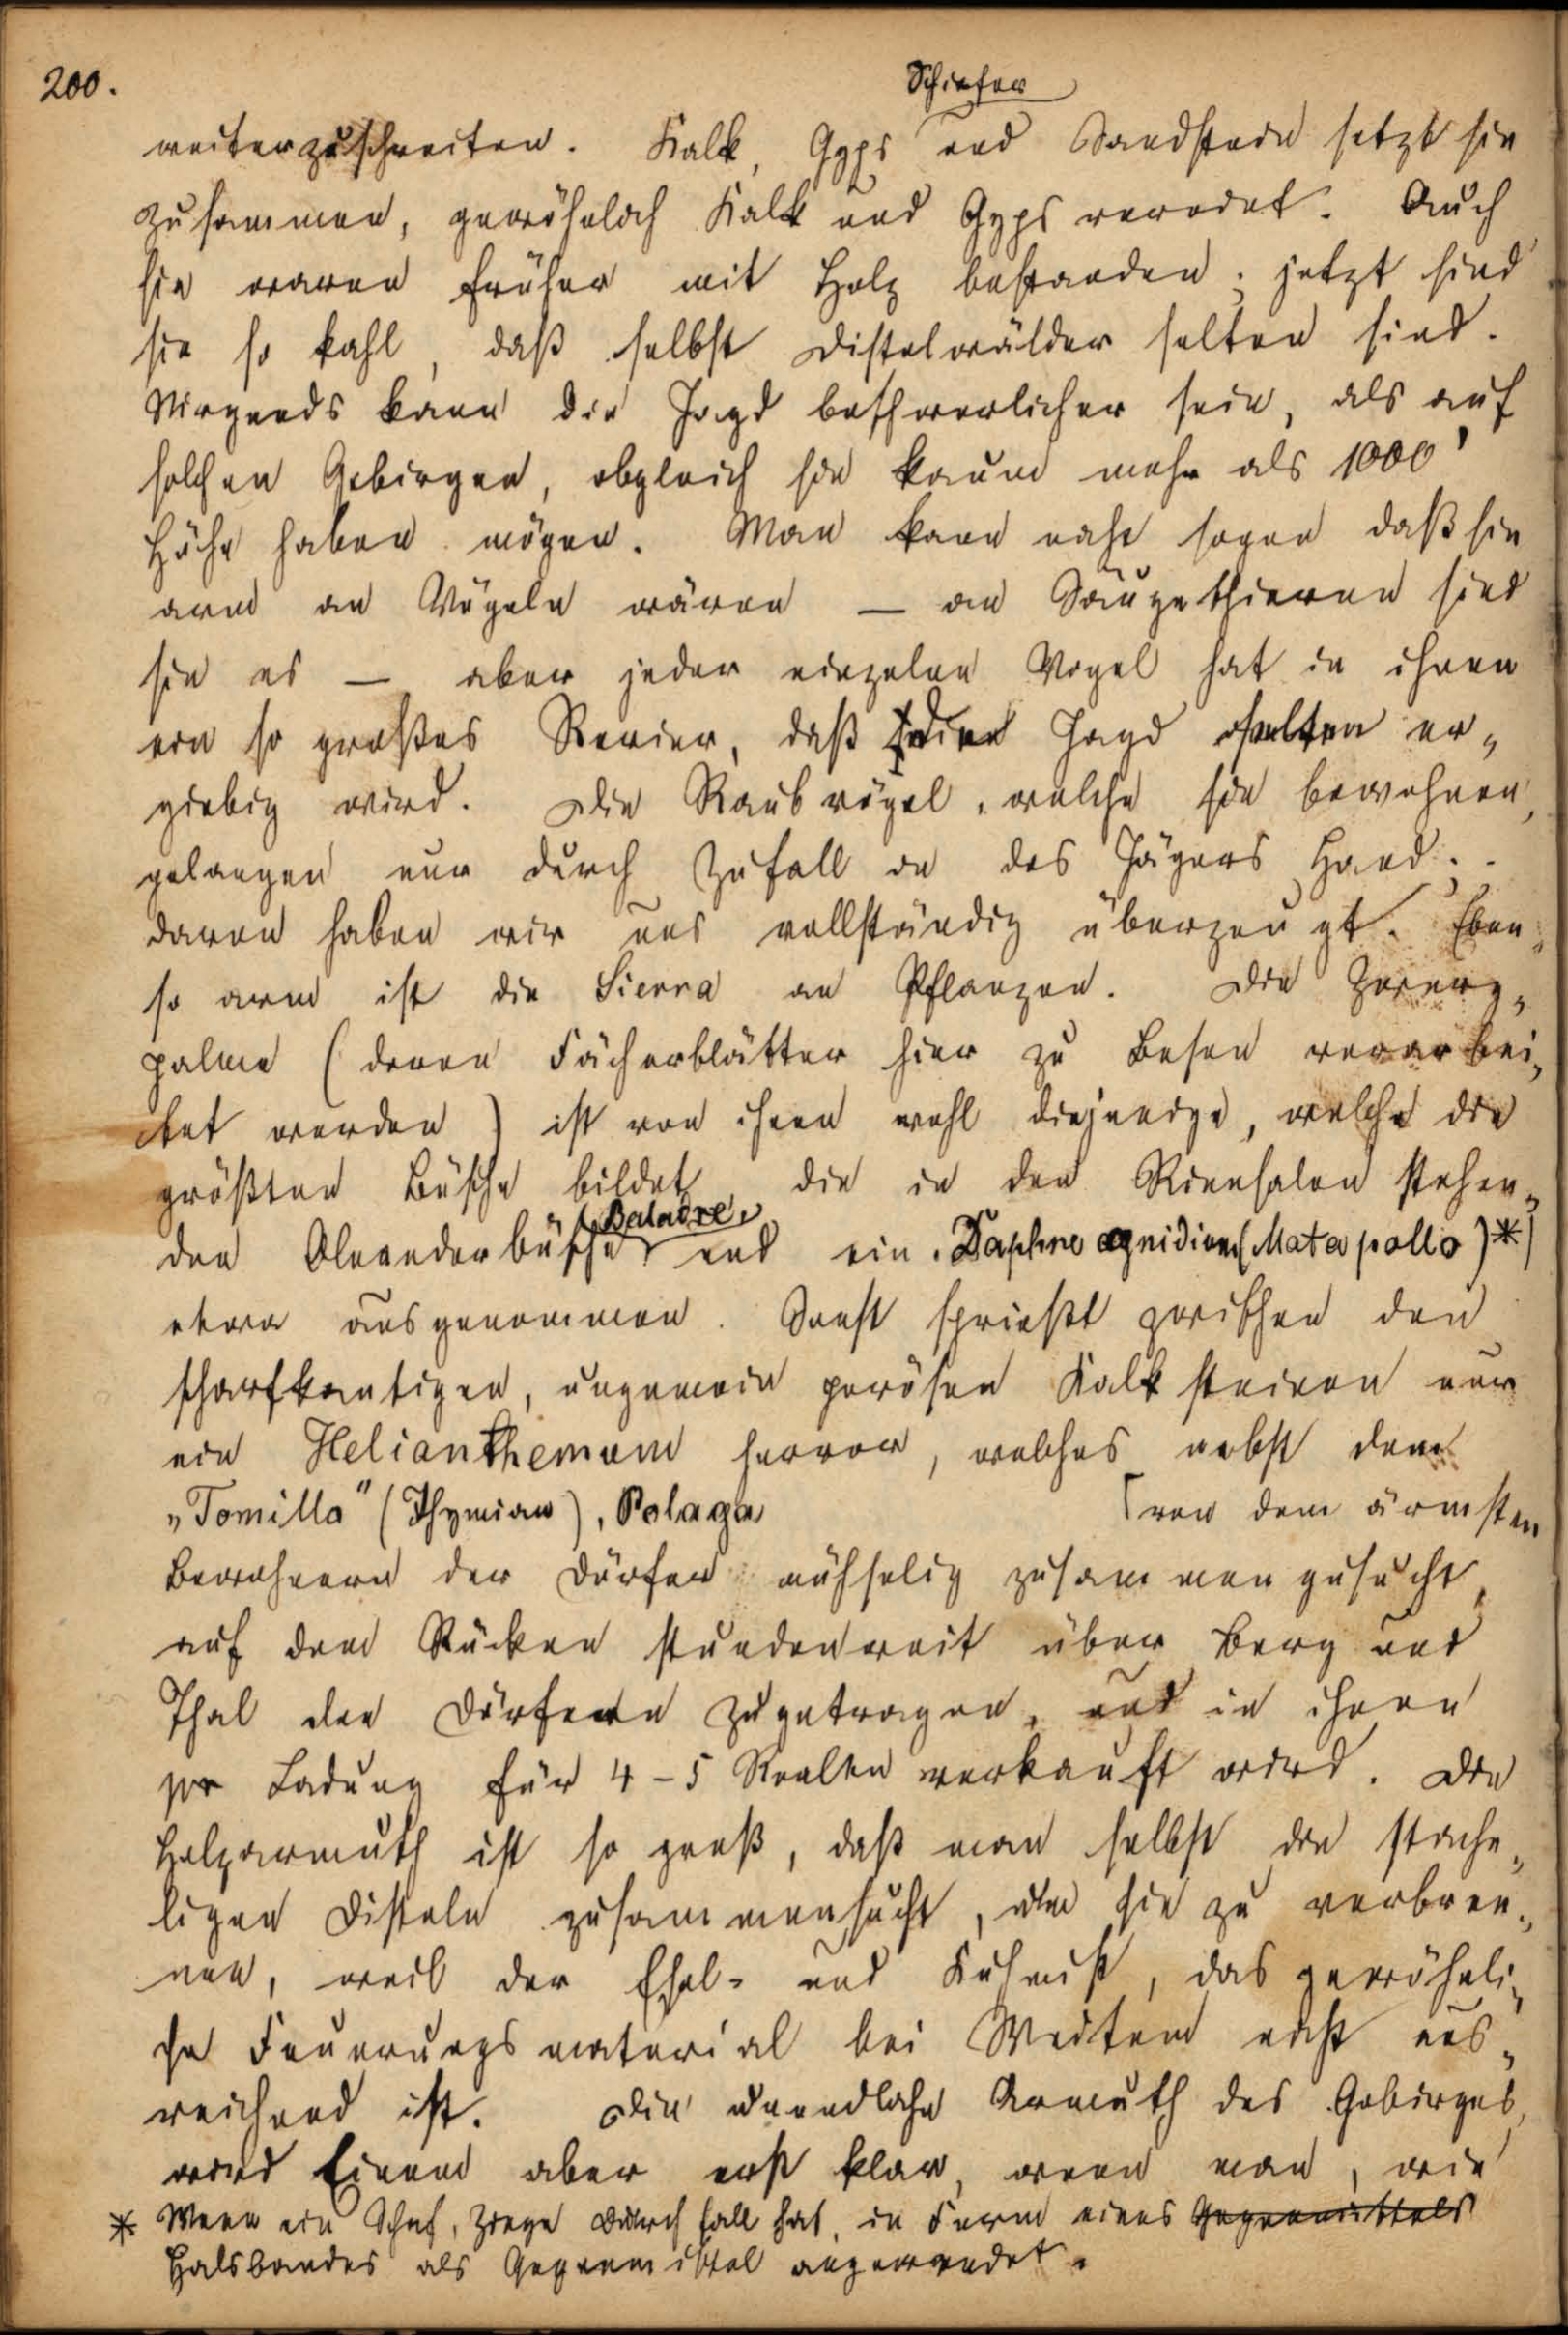 200.
Schiefer
weiterzuschreiten. Kalk, Gyps und Sandstein setzt sie
zusammen, gewöhnlich Kalk und Gyps vereint. Auch
sie waren früher mit Holz bestanden; jetzt sind
sie so kahl, daß selbst Distelwälder selten sind.
Nirgends kann die Jagd beschwerlicher sein, als auf
solchen Gebirgen, obgleich sie kaum mehr als 1000'
Höhe haben mögen. Man kann nicht sagen daß sie
arm an Vögeln wären — an Säugethieren sind
sie es — aber jeder einzelne Vogel hat in ihnen
ein so großes Revier, daß die Jagd selten er„
giebig wird. Die Raubvögel, welche sie bewohnen,
gelangen nur durch Zufall in des Jägers Hand;
davon haben wir uns vollständig überzeugt. Eben„
so arm ist die Sierra an Pflanzen. Die Zwerg„
palme (deren Fächerblätter hier zu Besen verarbei„
tet werden) ist von ihnen wohl diejenige, welche die
größten Büsche bildet, die in den Rinnsalen stehen„
(Baladre)
den Oleanderbüsche und ein Daphne gnidium (Mata pollo)*)
etwa ausgenommen. Sonst sprießt zwischen den
scharfkantigen, ungemein porösen Kalksteinen nur
ein Helianthemum hervor, welches nebst dem
„Tomillo" (Thymian), Polaga [von dem ärmsten
Bewohnern der Dörfer mühselig zusammengesucht,
auf dem Rücken stundenweit über Berg und
Thal den Dörfern zugetragen, und in ihnen
pr Ladung für 4-5 Realen verkauft wird. Die
Holzarmuth ist so groß, daß man selbst die stache„
ligen Disteln zusammensucht, um sie zu verbren„
nen, weil der Esel- und Kuhmist, das gewöhnli„
che Feuerungsmaterial bei Weitem nicht aus„
reichend ist. Die unendliche Armuth des Gebirges,
wird Einem aber erst klar, wenn man, wie
* Wenn ein Schaf, Ziege Durchfall hat, in Form eines Gegenmittels
Halsbandes als Gegenmittel angewendet.